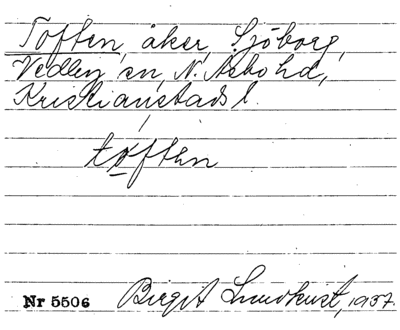 Toften, åker, Sjöborg,
Vedby sn, N. Åsbo hd,
Kristianstads l.
tøften
Nr 5506 Birgit Lundkvist, 1957.